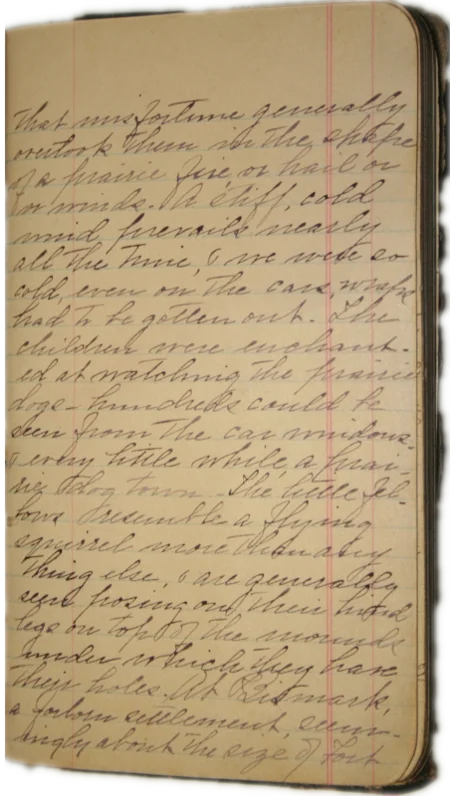 that misfortune generally
overtook them in the shape
of a prairie fire, or hail or
or winds. A stiff, cold
wind, prevails nearly
all the time, & we were so
cold, even on the cars, wraps
had to be gotten out. The
children were enchant-
ed at watching the prairie
dogs - hundreds could be
seen from the car windows-
& every little while, a prai-
rie dog town. The little fel-
lows resemble a flying
squirrel more than any
thing else, & are generally
seen posing on their hind
legs on top of the mounds
under which they have
their holes. At Bismark,
a forlorn settlement, seem-
ingly about the size of Fort